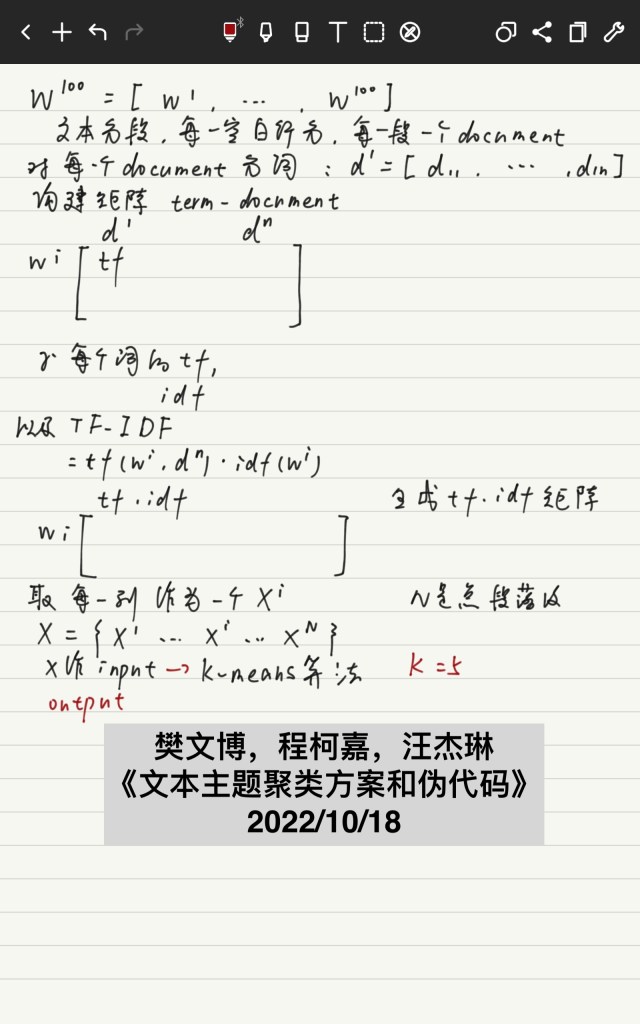 W¹⁰⁰ = [ w¹, ⋯, w¹⁰⁰ ]
文本分段,每一空白行分,每一段一个document
对每个document分词:d¹=[d₁₁, ⋯, d₁n]
构建矩阵 term-document
d¹ dⁿ
wⁱ [ tf ]
求每个词的tf,
idf
以及 TF-IDF
= tf(wⁱ, dⁿ)·idf(wⁱ)
tf·idf 生成tf·idf矩阵
wi [ ]
取每一列作为一个Xⁱ N是总段落数
X = { X¹ ⋯ Xⁱ ⋯ Xᴺ }
X作input → k-means算法 K=5
output
樊文博,程柯嘉,汪杰琳
《文本主题聚类方案和伪代码》
2022/10/18